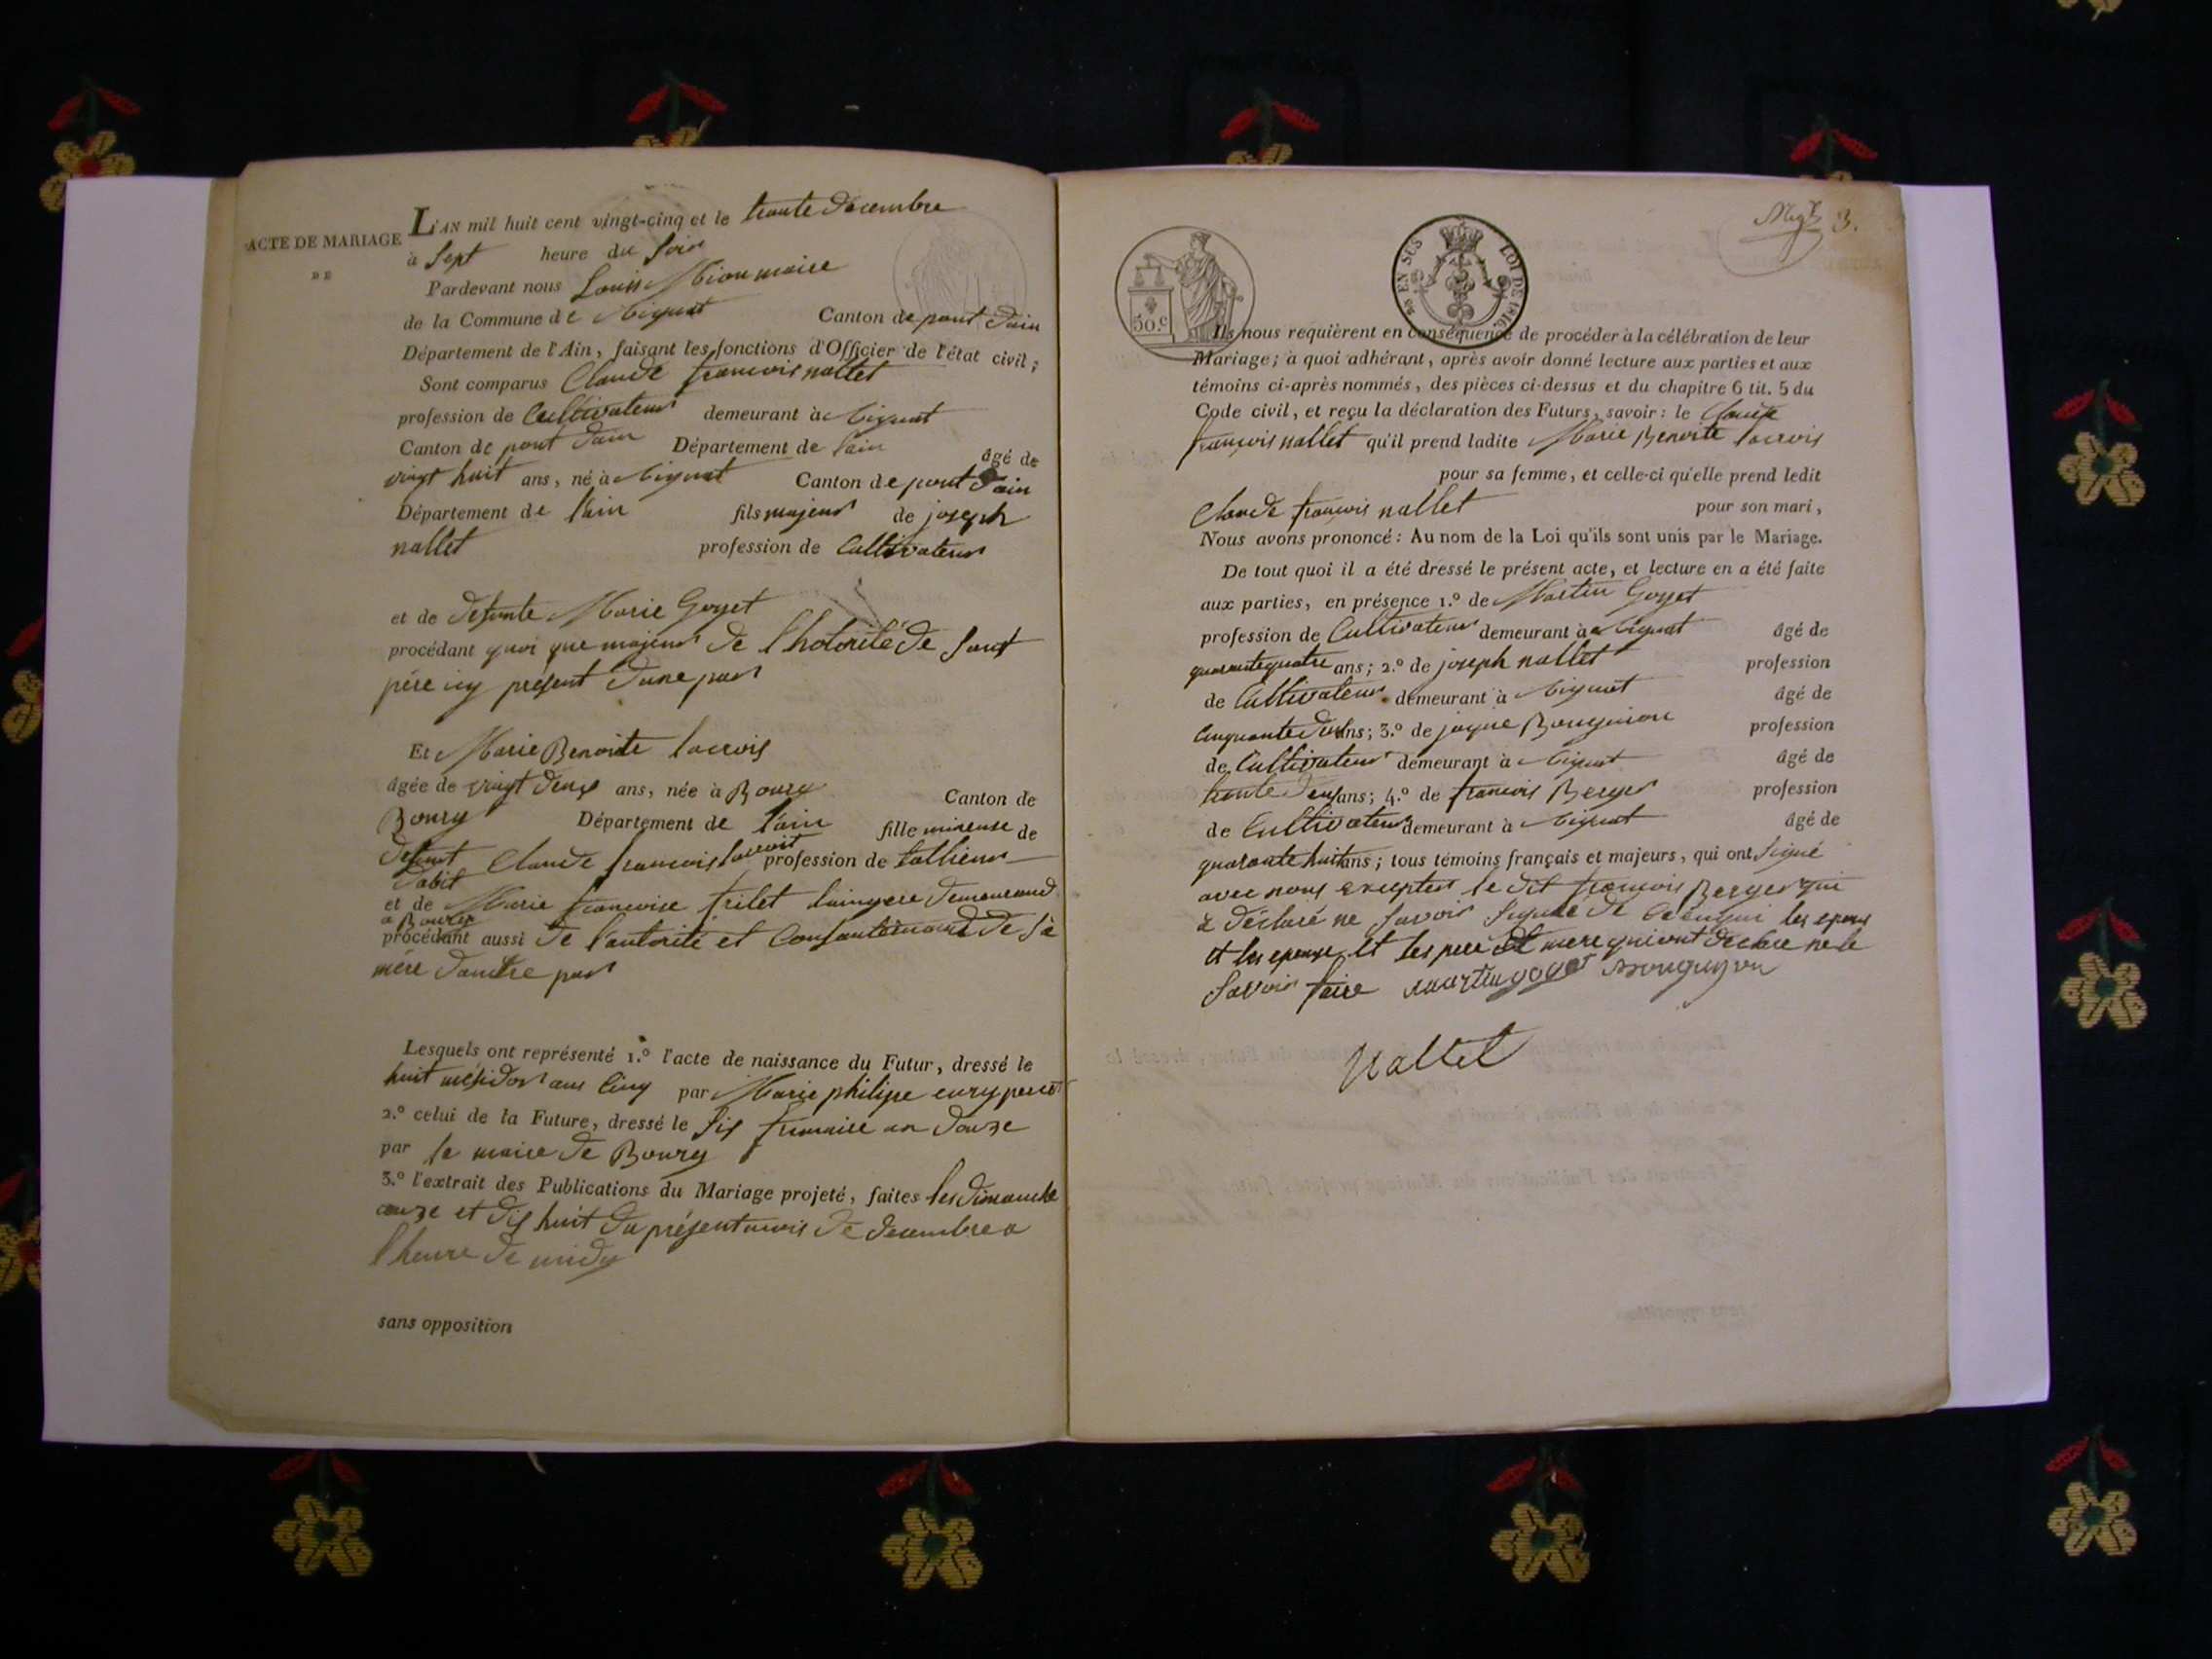 ACTE DE MARIAGE
DE
L'AN mil huit cent vingt-cinq et le trante decembre
à Sept heure du Soir
Pardevant nous Louis Mion maire
de la Commune de Mignat Canton de pont dain
Département de l'Ain, faisant les fonctions d'Officier de l'état civil;
Sont comparus Claude francois nallet
profession de Cultivateur demeurant à Mignat
Canton de pont dain Département de l'ain âgé de
vingt huit ans, né à Mignat Canton de pont dain
Département de l'ain fils majeur de joseph
nallet profession de Cultivateur
et de defunte Marie Goyet
procédant quoi que majeur de l'hotorité de Sont
père icy présent dune part
Et Marie Benoite lacroix
âgée de vingt deux ans, née à Bourg Canton de
Bourg Département de l'ain fille mineuse de
defunt Claude francois lacroix profession de tallieur
dabit
et de Marie francoise frilet laingere demeurand
a Bourg
procédant aussi de l'autorité et Consantemand de Sa
mére dautre part
Lesquels ont représenté 1.º l'acte de naissance du Futur, dressé le
huit mésidor ans Cinq par Marie philipe
2.º celui de la Future, dressé le Six frimaire an douze
par le maire de Bourg
3.º l'extrait des Publications du Mariage projeté, faites les dimanche
onze et dix huit du présent mois de decembre a
l'heure de midy
sans opposition
3.
50 EN SUS LOI DE 1816.
50.c
Ils nous requièrent en conséquence de procéder à la célébration de leur
Mariage; à quoi adhérant, après avoir donné lecture aux parties et aux
témoins ci-après nommés, des pièces ci-dessus et du chapitre 6 tit. 5 du
Code civil, et reçu la déclaration des Futurs, savoir: le Claude
françois nallet qu'il prend ladite Marie Benoite lacroix
pour sa femme, et celle-ci qu'elle prend ledit
Claude francois nallet pour son mari,
Nous avons prononcé: Au nom de la Loi qu'ils sont unis par le Mariage.
De tout quoi il a été dressé le présent acte, et lecture en a été faite
aux parties, en présence 1.º de Martin Goyet
profession de Cultivateur demeurant à Mignat âgé de
quarantequatre ans; 2.º de joseph nallet profession
de Cultivateur demeurant à Mignat âgé de
Cinquante deux ans; 3.º de jaque Bouguion profession
de Cultivateur demeurant à Mignat âgé de
trente deux ans; 4.º de francois Berger profession
de Cultivateur demeurant à Mignat âgé de
quarante huit ans; tous témoins français et majeurs, qui ont Signé
avec nous exceptez le dit françois Berger qui
a déclaré ne Savoir Signé de les epoux
et les epouse et les pere et mere qui ont declare ne le
Savoir faire martin goyet Bouguyon
Nallet